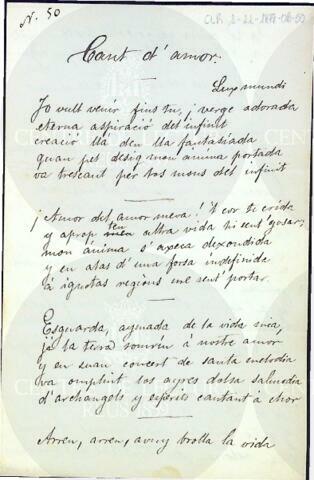 N. 50
CLR 2-22-1898-06-50
Cant d'amor.
Lux mundi
Jo vull venir fins tu, ¡verge adorada
eterna aspiració del infinit
creació llá deu lla fantasiada
quan pel desig mon ánima portada
va trescant per los mons del infinit
¡Amor del amor meva! 'l cor te crida
y aprop ten altra vida hi sent gosar;
mon ánima s'axeca dexondida
y en alas d'una forsa indefinida
á ignotas regións me sent portar.
Esguarda, aymada de la vida mia,
ja la terra somriu á nostre amor
y en suau concert de santa melodia
va omplint los ayres dolsa salmodia
d'archangels y esperits cantant á chor
Arreu, arreu, avuy brolla la vida